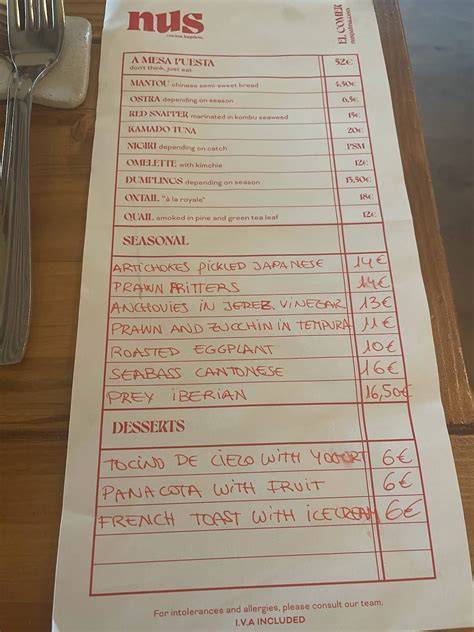 nus
cocina hogareña.
EL COMER
A MESA PUESTA 52€
don't think, just eat
MANTOU chinese semi-sweet bread 4,50€
OSTRA depending on season 6,5€
RED SNAPPER marinated in kombu seaweed 15€
KAMADO TUNA 20€
NIGIRI depending on catch PSM
OMELETTE with kimchie 12€
DUMPLINGS depending on season 13,50€
OXTAIL "à la royale" 18€
QUAIL smoked in pine and green tea leaf 12€
SEASONAL
ARTICHOKES PICKLED JAPANESE 14€
PRAWN FRITTERS 14€
ANCHOVIES IN JEREZ VINEGAR 13€
PRAWN AND ZUCCHIN IN TEMPURA 11€
ROASTED EGGPLANT 10€
SEABASS CANTONESE 16€
PREY IBERIAN 16,50€
DESSERTS
TOCINO DE CIELO WITH YOGORT 6€
PANACOTA WITH FRUIT 6€
FRENCH TOAST WITH ICECREAM 6€
For intolerances and allergies, please consult our team.
I.V.A INCLUDED